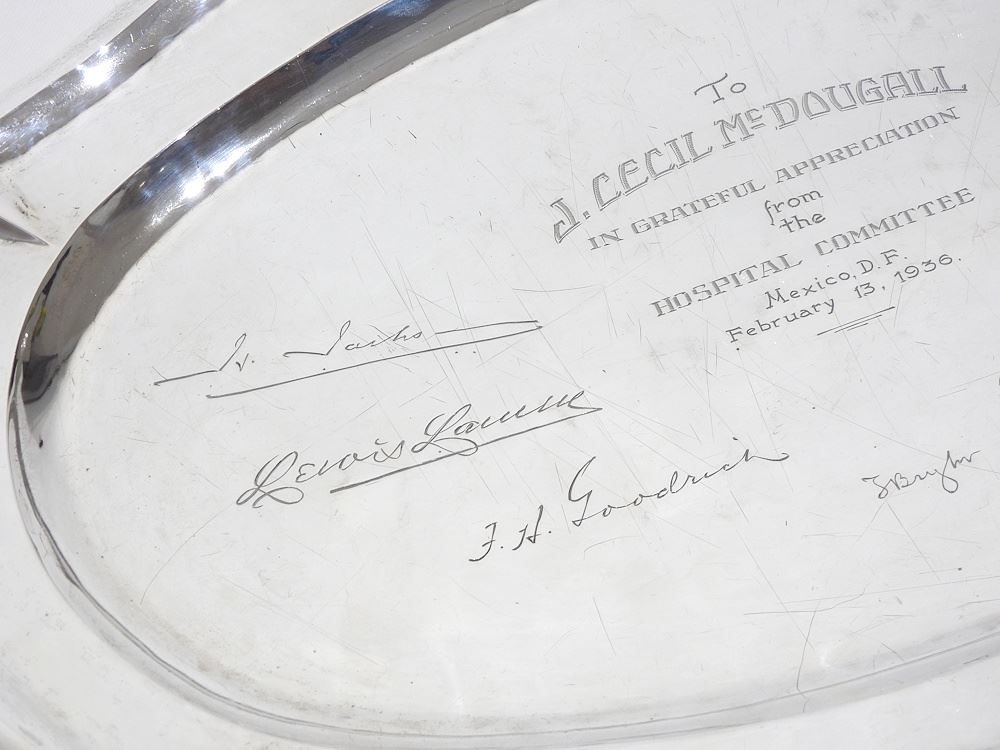 To
J. CECIL McDOUGALL
IN GRATEFUL APPRECIATION
from
the
HOSPITAL COMMITTEE
Mexico, D.F.
February 13, 1936.
Lewis Lamm
F. H. Goodrich